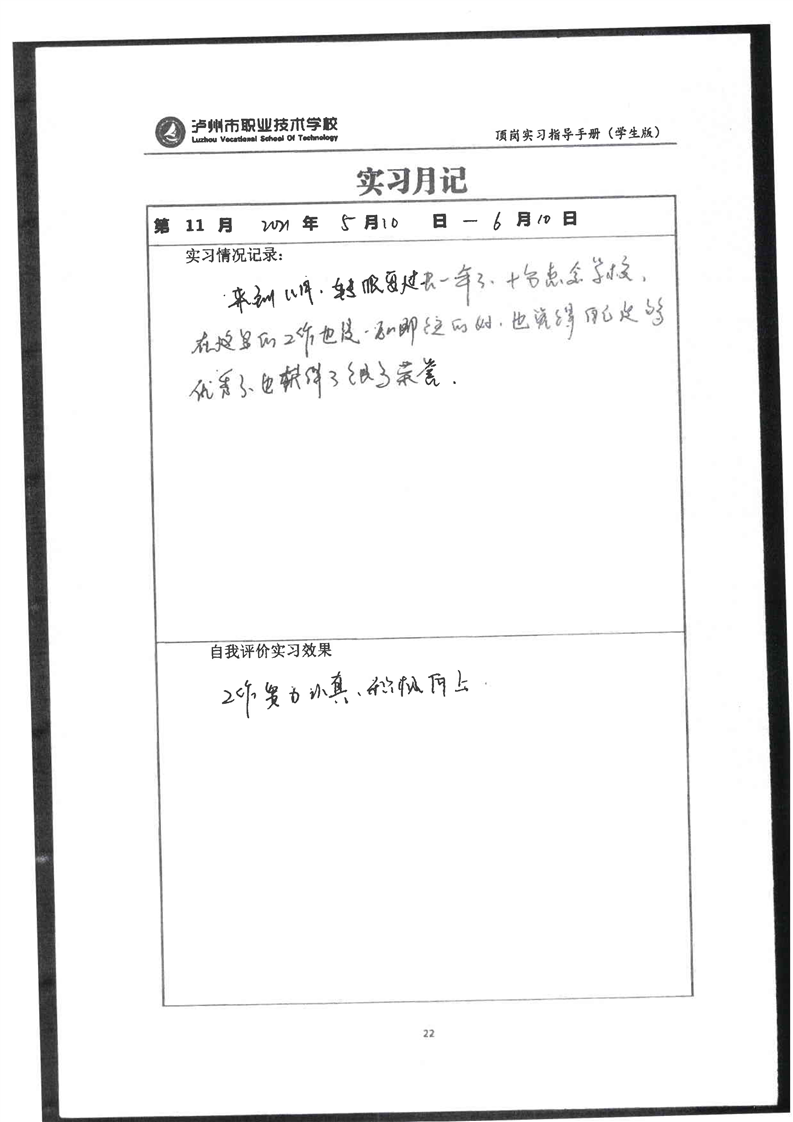 泸州市职业技术学校
Luzhou Vocational School Of Technology
顶岗实习指导手册（学生版）
实习月记
第 11 月 2021 年 5 月 10 日 — 6 月 10 日
实习情况记录：
来到11月，转眼要过去一年了、十分想念学校，
在这里的工作也是一如即往的好，也觉得自己足够
优秀了也获得了很多荣誉．
自我评价实习效果
工作努力认真、积极向上．
22